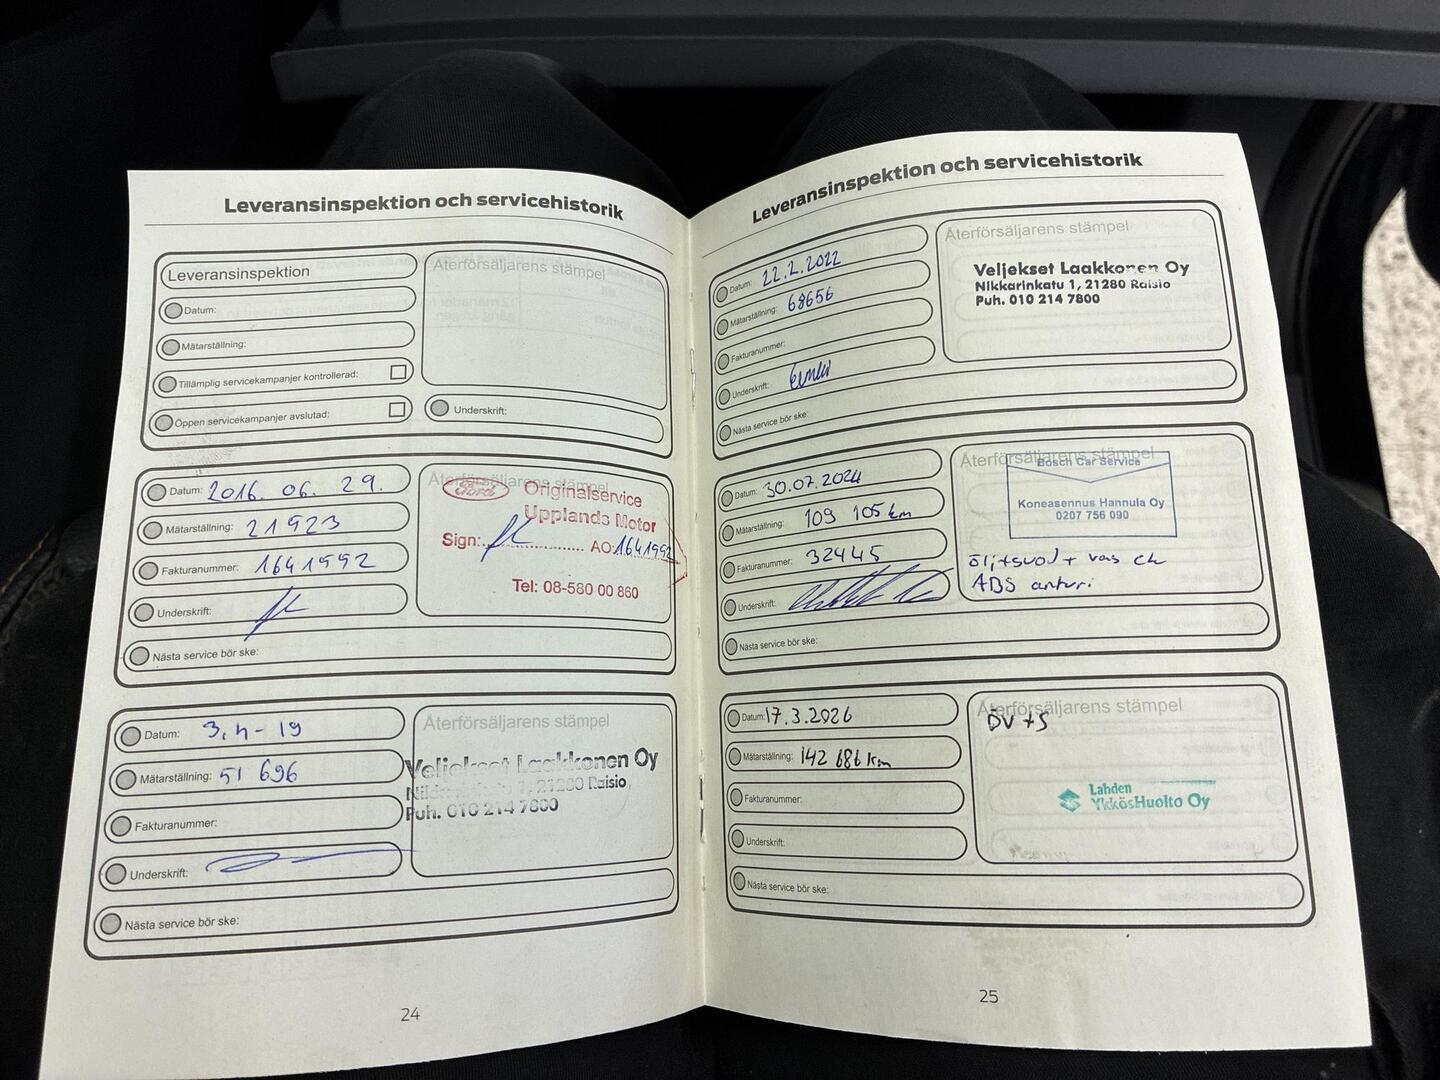 Leveransinspektion och servicehistorik
Leveransinspektion
Återförsäljarens stämpel
Datum:
Mätarställning:
Tillämplig servicekampanjer kontrollerad:
Öppen servicekampanjer avslutad:
Underskrift:
Datum: 2016. 06. 29.
Mätarställning: 21923
Fakturanummer: 1641992
Underskrift:
Nästa service bör ske:
Återförsäljarens stämpel
Ford Originalservice
Upplands Motor
Sign: AO: 1641992
Tel: 08-580 00 860
Datum: 3.4-19
Mätarställning: 51 696
Fakturanummer:
Underskrift:
Nästa service bör ske:
Återförsäljarens stämpel
Veljekset Laakkonen Oy
1, 21280 Raisio
Puh. 010 214 7800
24
Leveransinspektion och servicehistorik
Datum: 22.2.2022
Mätarställning: 68656
Fakturanummer:
Underskrift:
Nästa service bör ske:
Återförsäljarens stämpel
Veljekset Laakkonen Oy
Nikkarinkatu 1, 21280 Raisio
Puh. 010 214 7800
Datum: 30.07.2024
Mätarställning: 109 105 km
Fakturanummer: 32445
Underskrift:
Nästa service bör ske:
Återförsäljarens stämpel
Bosch Car Service
Koneasennus Hannula Oy
0207 756 090
öljy+suod+ vas
ABS anturi
Datum: 17.3.2026
Mätarställning: 142 686 km
Fakturanummer:
Underskrift:
Nästa service bör ske:
Återförsäljarens stämpel
ÖV+S
Lahden
YkkösHuolto Oy
25